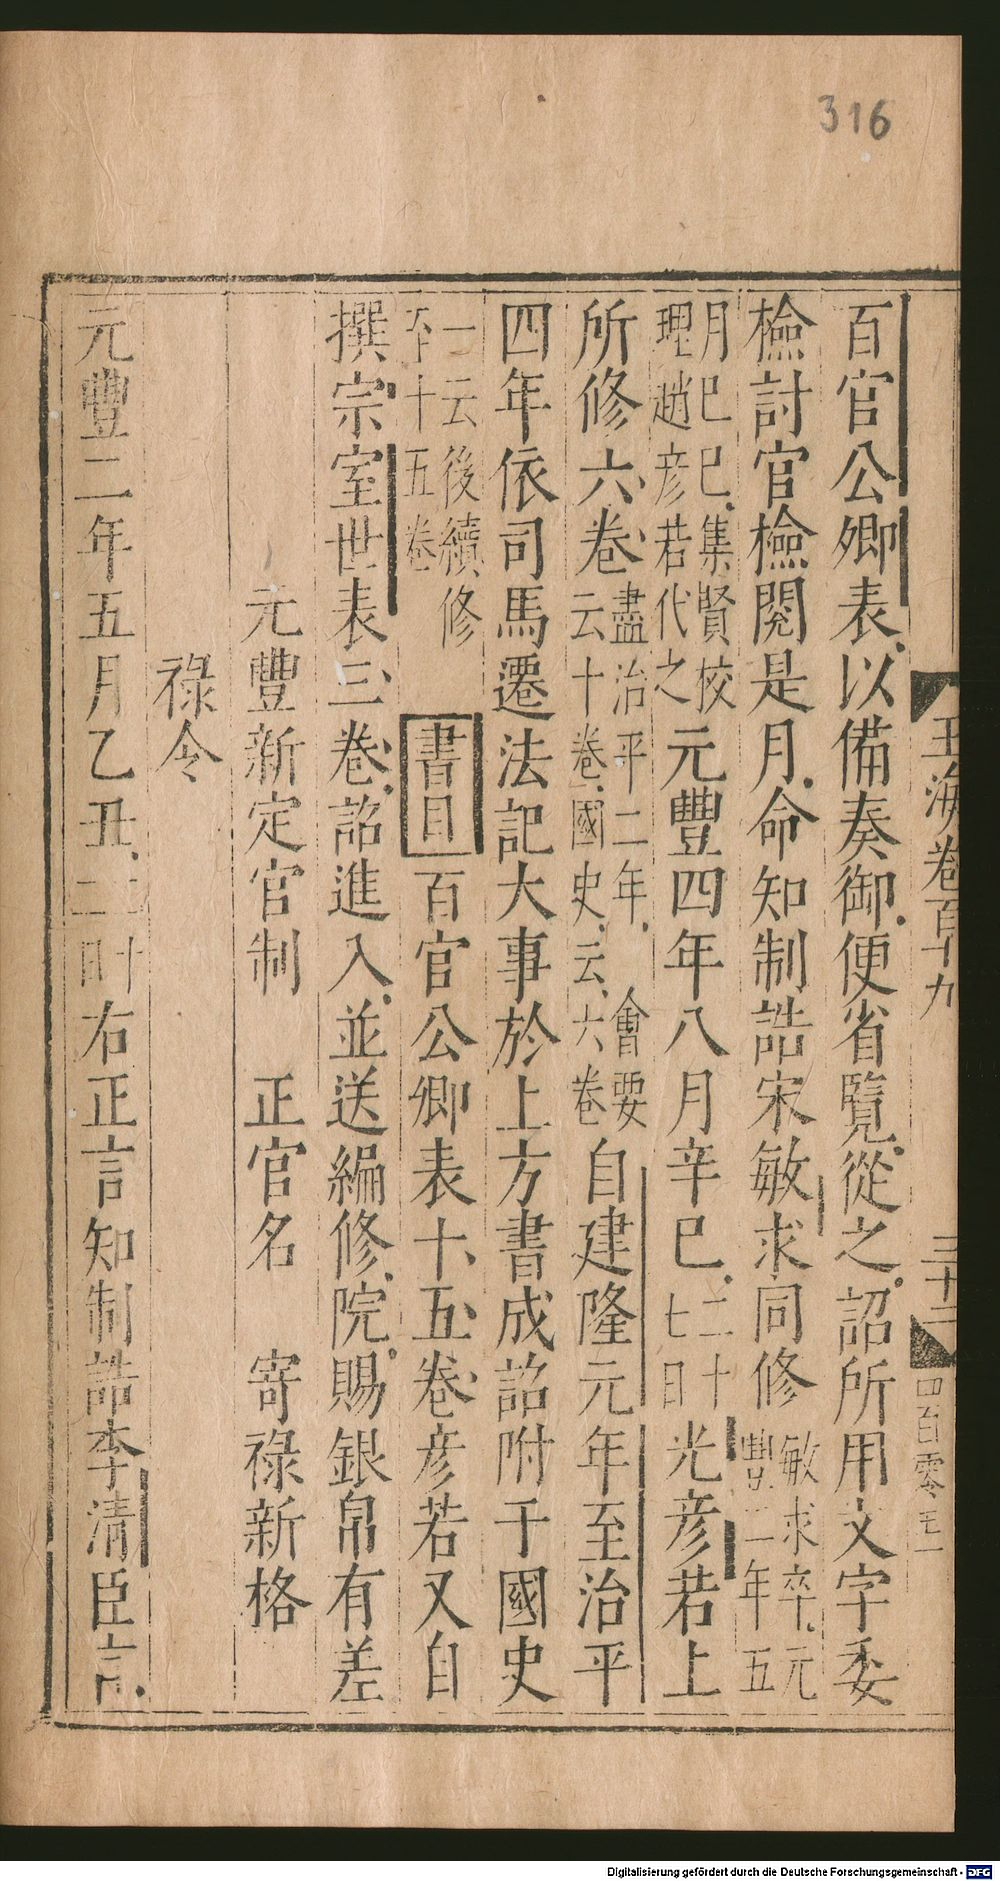 316
玉海卷百十九
三十二
四百零五
百官公卿表以備奏御便省覽從之詔所用文字委
檢討官檢閱是月命知制誥宋敏求同修敏求卒元豐二年五
月己巳集賢校理趙彦若代之元豐四年八月辛巳二十七日光彦若上
所修六卷盡治平二年會要云十卷國史云六卷自建隆元年至治平
四年依司馬遷法記大事於上方書成詔附于國史
一云後續修至十五卷書目百官公卿表十五卷彦若又自
撰宗室世表三卷詔進入並送編修院賜銀帛有差
元豐新定官制 正官名 寄祿新格
祿令
元豐二年五月乙丑右正言知制誥李清臣言
Digitalisierung gefördert durch die Deutsche Forschungsgemeinschaft - DFG